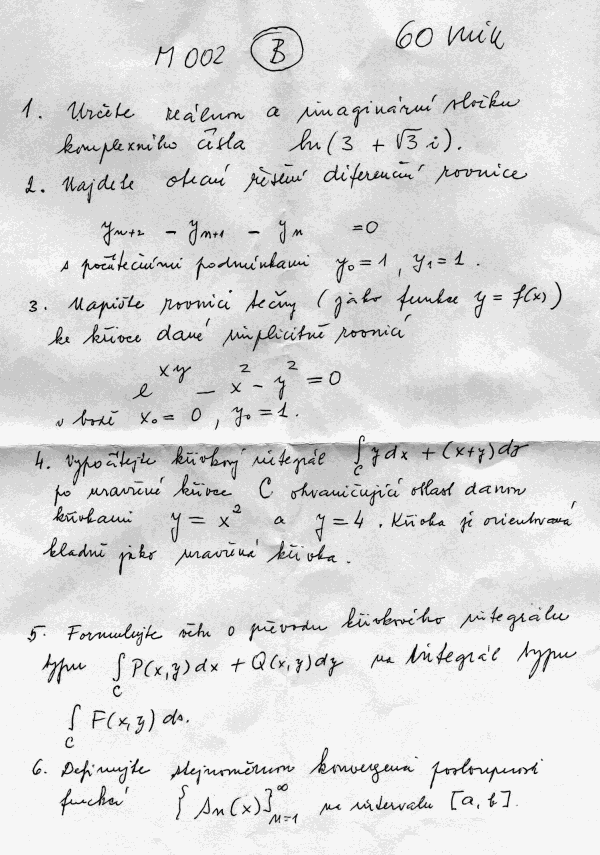 M 002 B 60 min
1. Určete reálnou a imaginární složku
komplexního čísla ln(3 + √3 i).
2. Najdete obecní řešení diferenční rovnice
yₙ₊₂ - yₙ₊₁ - yₙ = 0
s počátečními podmínkami y₀ = 1, y₁ = 1.
3. Napište rovnici tečny (jako funkce y = f(x))
ke křivce dané implicitně rovnicí
e^xy - x² - y² = 0
v bodě x₀ = 0, y₀ = 1.
4. Vypočítejte křivkový integrál ∫_C y dx + (x+y) dy
po uzavřené křivce C ohraničující oblast danou
křivkami y = x² a y = 4. Křivka je orientovaná
kladně jako uzavřená křivka.
5. Formulujte větu o převodu křivkového integrálu
typu ∫_C P(x,y) dx + Q(x,y) dy na integrál typu
∫_C F(x,y) ds.
6. Definujte stejnoměrnou konvergenci posloupnosti
funkcí {Sn(x)}_{n=1}^∞ na intervalu [a, b].